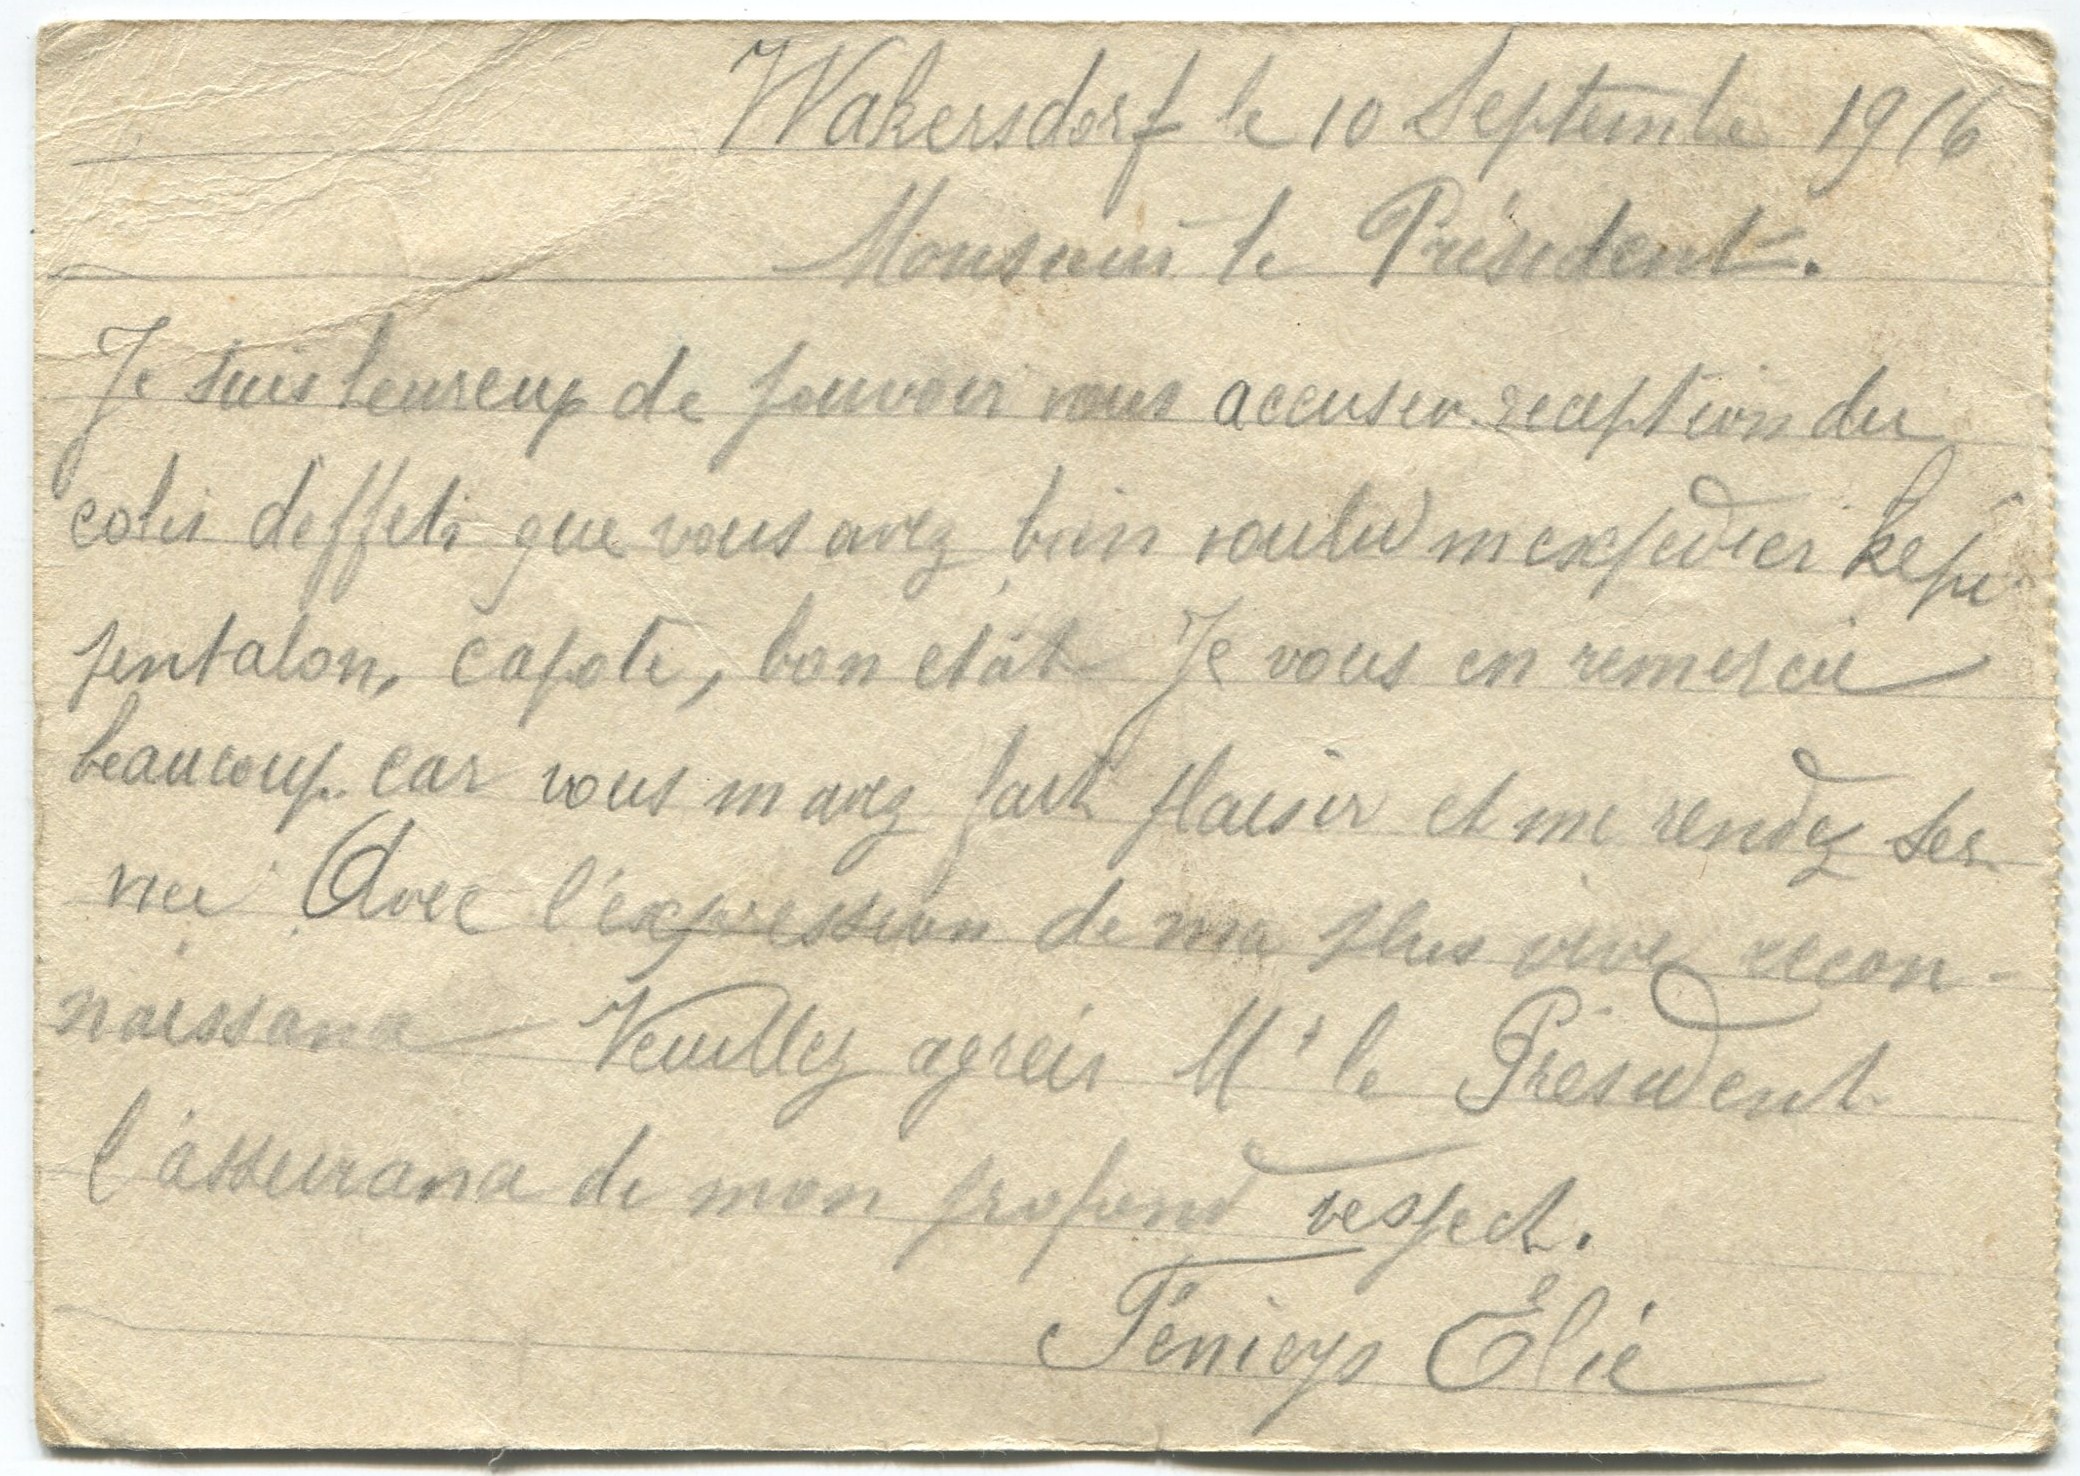 Wakersdorf le 10 Septembre 1916
Monsieur le Président.
Je suis heureux de pouvoir vous accuser reception du
colis d'effets que vous avez bien voulu m expedier Kepi
pentalon, capote, bon etât Je vous en remercie
beaucoup. car vous m avez fait plaisir et me rendez ser
vice Avec l'expression de ma plus vive recon-
naissance Veuillez agréer Mr le Président
l'assurance de mon profond respect.
Élie